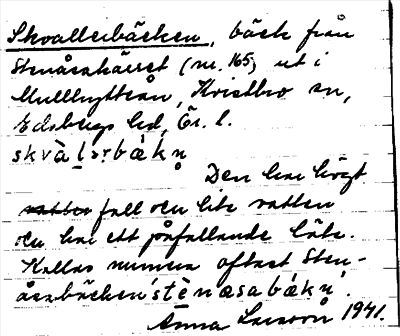 Skvallerbäcken, bäck från
Stenåsakärret (nr. 165) ut i
Mullhytteån, Kvistbro sn,
Edsbergs hd, Ör. l.
skvàl̥ərbák̥n̥
Den har högt
fall och lite vatten
och har ett påfallande läte.
Kallas numera oftast Sten-
åsabäcken stènæsabák̥n̥.
Anna Larsson 1941.